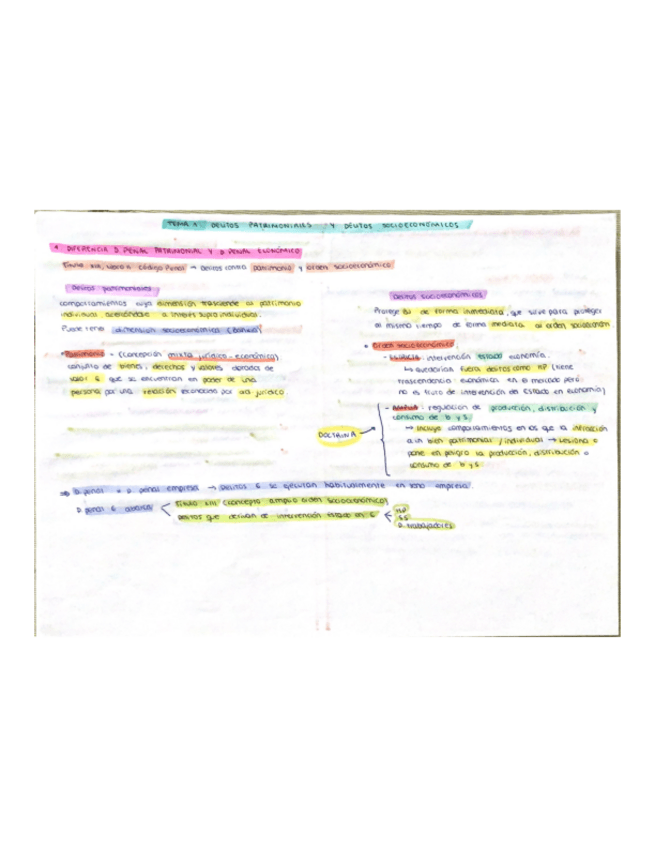 TEMA 1 DELITOS PATRIMONIALES Y DELITOS SOCIOECONÓMICOS
* DIFERENCIA D. PENAL PATRIMONIAL Y D PENAL ECONÓMICO
Título XIII, Libro II Código Penal → Delitos contra patrimonio y orden socioeconómico
Delitos patrimoniales
comportamientos cuya dimensión trasciende la patrimonio
individual, acercándose a interés supraindividual.
Puede tener dimensión socioeconómica
• Patrimonio - (concepción mixta jurídico-económica)
conjunto de bienes, derechos y valores dotados de
valor € que se encuentran en poder de una
persona por una relación reconocida por ord. jurídico.
Delitos socioeconómicos
Protege BJ de forma inmediata, que sirve para proteger
al mismo tiempo de forma mediata al orden socioeconóm.
• Orden socioeconómico:
- Estricta: intervención estado economía.
↳ quedarían fuera delitos como HP (tiene
trascendencia económica en el mercado pero
no es fruto de intervención de Estado en economía)
DOCTRINA →
- Amplia: regulación de producción, distribución y
consumo de b y s.
→ Incluye comportamientos en los que la infracción
a un bien patrimonial / individual → lesiona o
pone en peligro la producción, distribución o
consumo de b y s.
⇒ D. penal € = D. penal empresa → Delitos € se ejecutan habitualmente en seno empresa.
D. penal € abarca
Título XIII (concepto amplio orden socioeconómico)
Delitos que derivan de intervención Estado en €
HP
SS
D. trabajadores